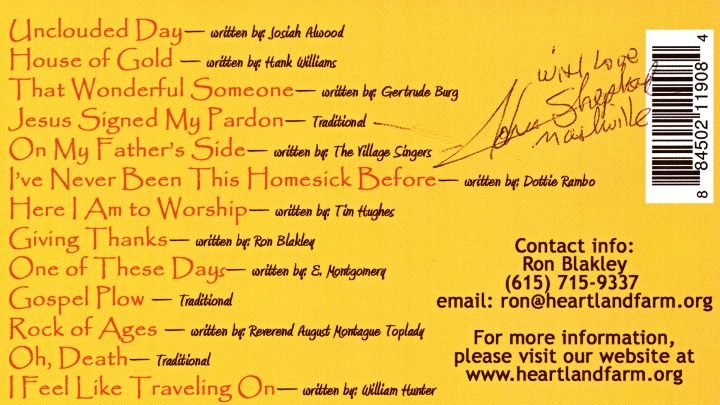 Unclouded Day— written by: Josiah Alwood
House of Gold — written by: Hank Williams
That Wonderful Someone— written by: Gertrude Burg
Jesus Signed My Pardon— Traditional
On My Father's Side— written by: The Village Singers
I've Never Been This Homesick Before— written by: Dottie Rambo
Here I Am to Worship— written by: Tim Hughes
Giving Thanks— written by: Ron Blakley
One of These Days— written by: E. Montgomery
Gospel Plow — Traditional
Rock of Ages — written by: Reverend August Montague Toplady
Oh, Death— Traditional
I Feel Like Traveling On— written by: William Hunter
with Love
John Shephard
nashville
8 84502 11908 4
Contact info:
Ron Blakley
(615) 715-9337
email: ron@heartlandfarm.org
For more information,
please visit our website at
www.heartlandfarm.org